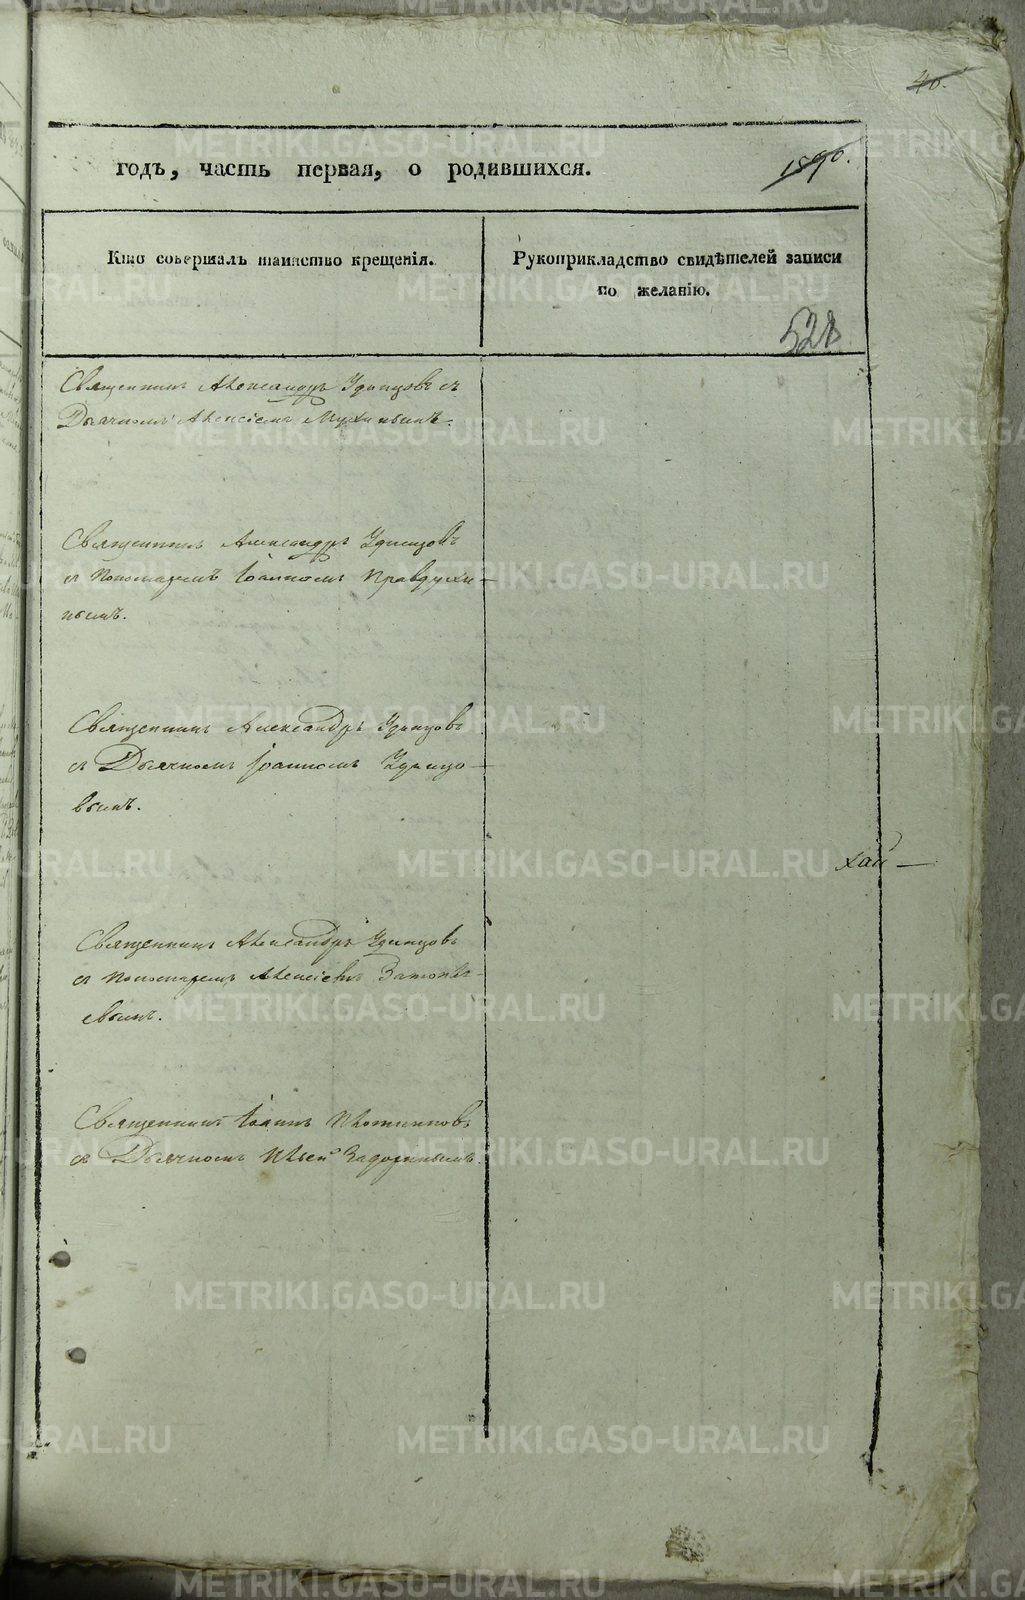 40.
годъ, часть первая, о родившихся.
1590.
Кто совершалъ таинство крещенія.
Рукоприкладство свидѣтелей записи
по желанію.
528
Священникъ Александръ Удинцовъ съ
Дьячкомъ Алексіемъ Мухинымъ.
Священникъ Александръ Удинцовъ
съ Пономаремъ Іоанномъ Правдухи-
нымъ.
Священникъ Александръ Удинцовъ
съ Дьячкомъ Іоанномъ Удинцо-
вымъ.
хай-
Священникъ Александръ Удинцовъ
съ Пономаремъ Алексіемъ
евымъ.
Священникъ Іоаннъ Плотниковъ
съ Дьячкомъ Ильей Задоринымъ.
METRIKI.GASO-URAL.RU